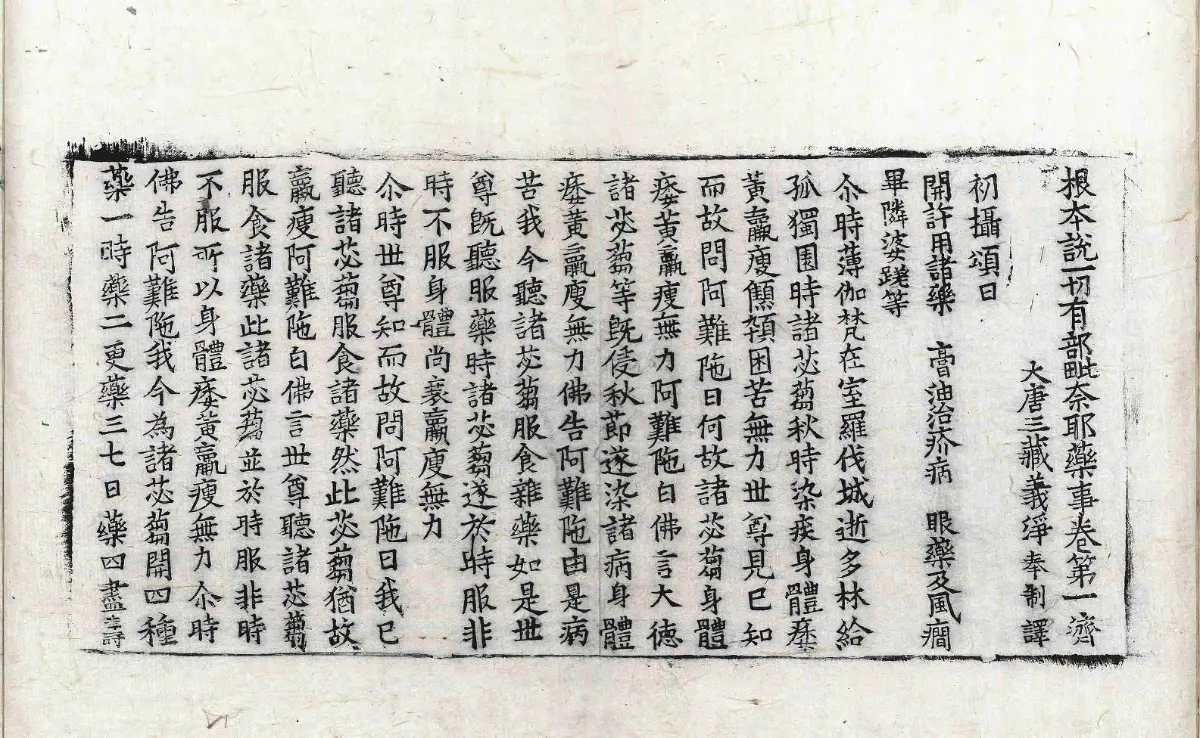 根本說一切有部毗奈耶藥事卷第一 濟
大唐三藏義淨奉 制譯
初攝頌曰
開許用諸藥 膏油治疥病 眼藥及風癇
畢隣婆蹉等
尒時薄伽梵在室羅伐城逝多林給
孤獨園時諸苾蒭秋時染疾身體痿
黃羸瘦顦顇困苦無力世尊見已知
而故問阿難陁曰何故諸苾蒭身體
痿黃羸瘦無力阿難陁白佛言大德
諸苾蒭等旣侵秋節遂染諸病身體
痿黃羸瘦無力佛告阿難陁由是病
苦我今聽諸苾蒭服食雜藥如是世
尊旣聽服藥時諸苾蒭遂於時服非
時不服身體尚衰羸瘦無力
尒時世尊知而故問阿難陁曰我已
聽諸苾蒭服食諸藥然此苾蒭猶故
羸瘦阿難陁白佛言世尊聽諸苾蒭
服食諸藥此諸苾蒭並於時服非時
不服所以身體痿黃羸瘦無力尒時
佛告阿難陁我今為諸苾蒭開四種
藥一時藥二更藥三七日藥四盡壽